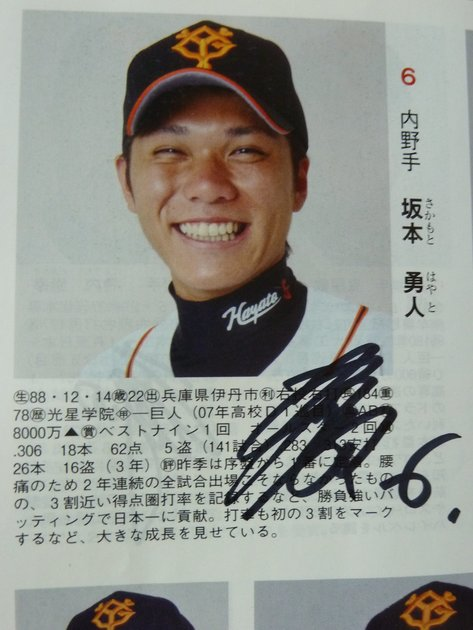 6 内野手 坂本 勇人
さかもと はやと
Hayato 6
生88・12・14歳22出兵庫県伊丹市利右投右打
78歴光星学院―巨人(07年高校D1巡目)
8000万▲賞ベストナイン1回
.306 18本 62点 5盗(141試合)
26本 16盗(3年)評昨季は序盤から1番に定着。腰
痛のため2年連続の全試合出場こそならなかったもの
の、3割近い得点圏打率を記録するなど、勝負強いバ
ッティングで日本一に貢献。打率も初の3割をマーク
するなど、大きな成長を見せている。
6.